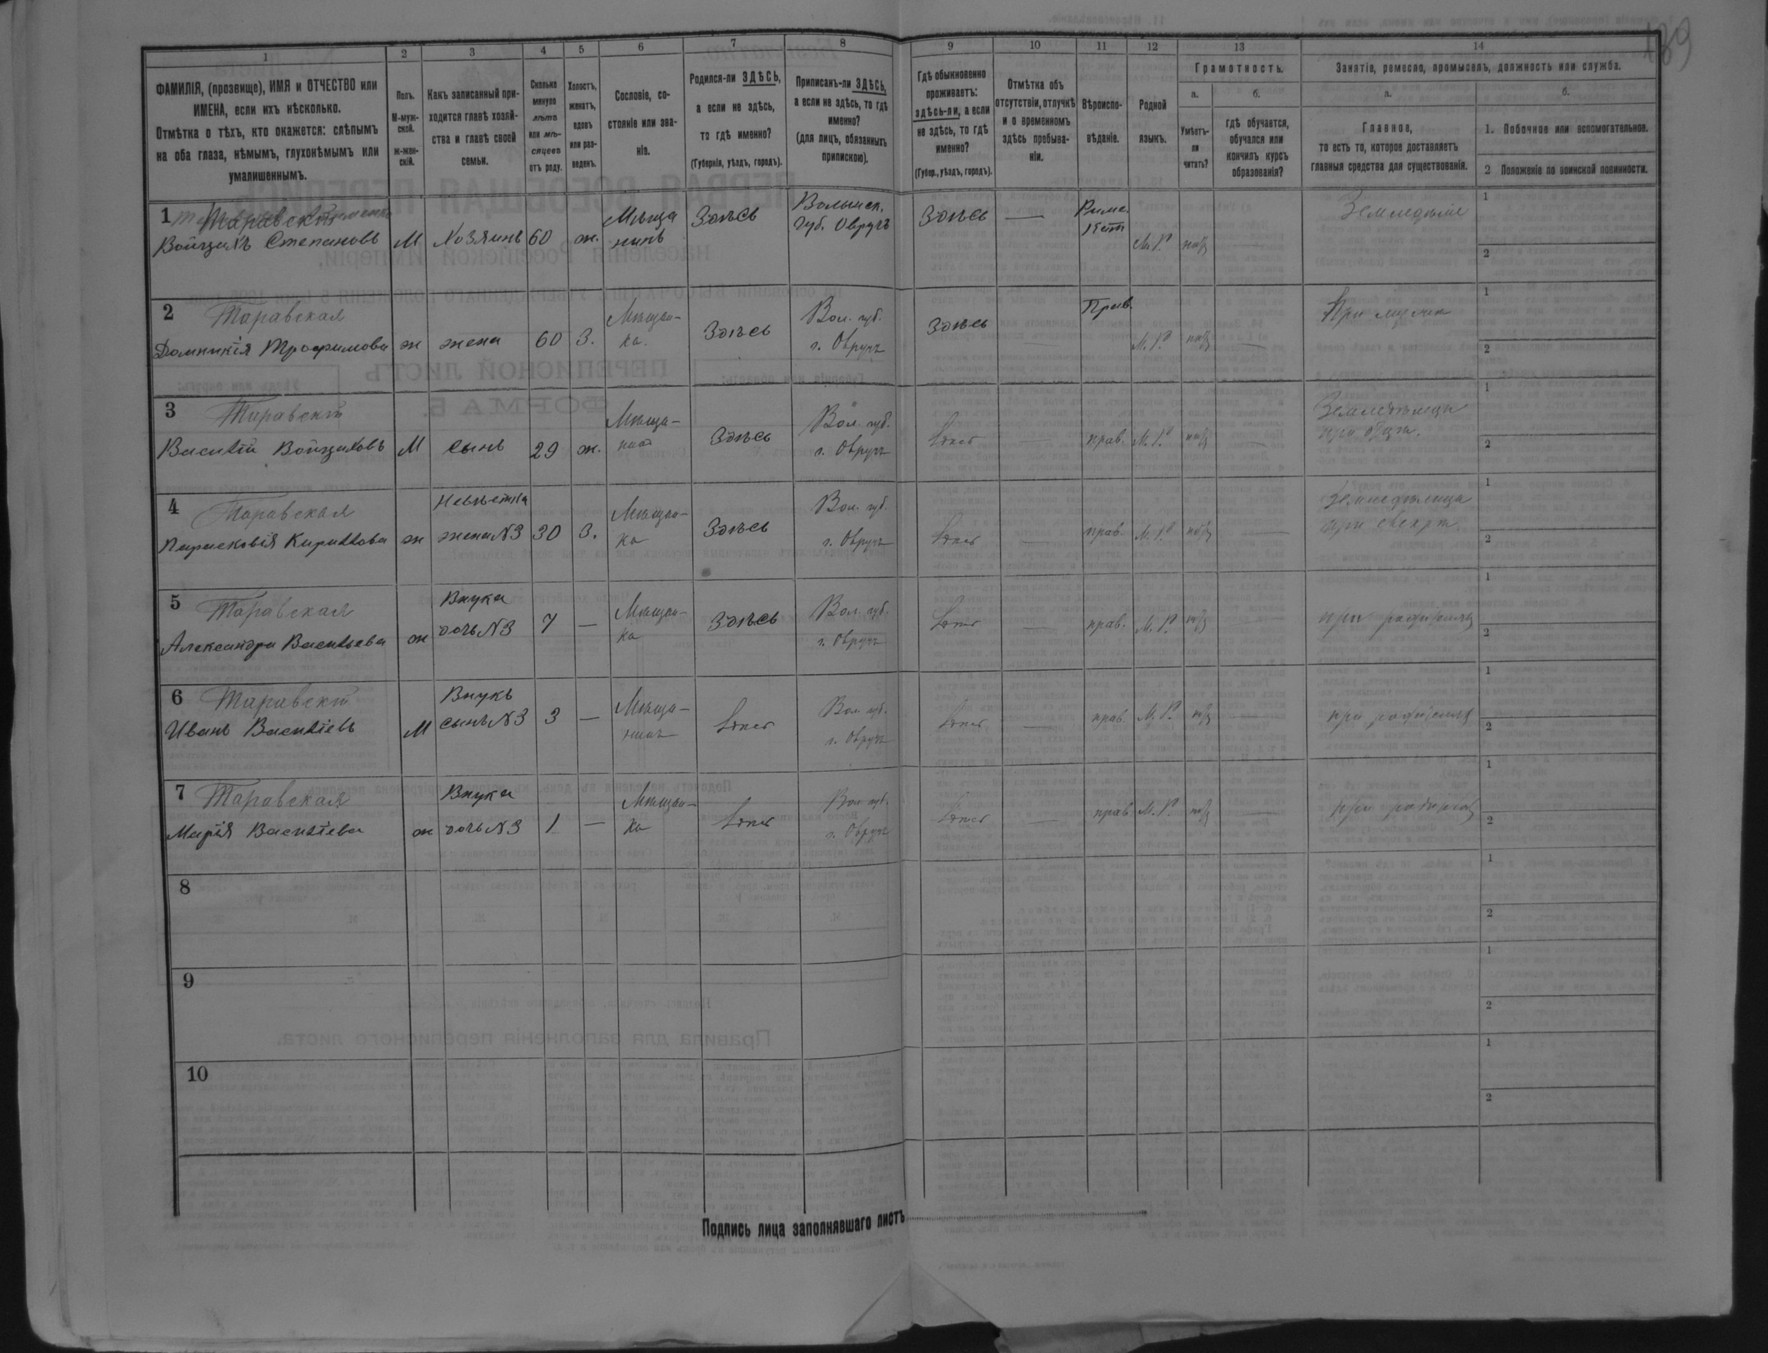 189
1 2 3 4 5 6 7 8 9 10 11 12 13 14
ФАМИЛІЯ, (прозвище), ИМЯ и ОТЧЕСТВО или ИМЕНА, если ихъ нѣсколько.
Отмѣтка о тѣхъ, кто окажется: слѣпымъ на оба глаза, нѣмымъ, глухонѣмымъ или умалишеннымъ.
Полъ. М-мужской. ж-женскій.
Какъ записанный приходится главѣ хозяйства и главѣ своей семьи.
Сколько минуло лѣтъ или мѣсяцевъ отъ роду.
Холостъ, женатъ, вдовъ или разведенъ.
Сословіе, состояніе или званіе.
Родился-ли ЗДѢСЬ, а если не здѣсь, то гдѣ именно?
(Губернія, уѣздъ, городъ).
Приписанъ-ли ЗДѢСЬ, а если не здѣсь, то гдѣ именно?
(для лицъ, обязанныхъ припискою).
Гдѣ обыкновенно проживаетъ: здѣсь-ли, а если не здѣсь, то гдѣ именно?
(Губер., уѣздъ, городъ).
Отмѣтка объ отсутствіи, отлучкѣ и о временномъ здѣсь пребываніи.
Вѣроисповѣданіе.
Родной языкъ.
Грамотность.
а. Умѣетъ-ли читать?
б. гдѣ обучается, обучался или кончилъ курсъ образованія?
Занятіе, ремесло, промыселъ, должность или служба.
а. Главное, то есть то, которое доставляетъ главныя средства для существованія.
б. 1. Побочное или вспомогательное.
2 Положеніе по воинской повинности.
1 Таравскій
Войцихъ Степановъ М Хозяинъ 60 ж. Мѣщанинъ Здѣсь Волынск. губ. Овручъ Здѣсь — Римс. Кат. М. Р. Земледѣліе 1 2
2 Таравская
Домникія Трофимова ж жена 60 З. Мѣщанка. Здѣсь Вол. губ. г. Овручъ Здѣсь — Прав. М. Р. — При мужѣ 1 2
3 Таравскій
Василій Войциховъ М сынъ 29 ж. Мѣща- Здѣсь Вол. губ. г. Овручъ Здѣсь — прав. М. Р. — 1 2
4 Таравская
Парасковія Кириллова ж Невѣстка жена N3 30 З. Мѣщанка Здѣсь Вол. губ. г. Овручъ Здѣсь — прав. М. Р. — 1 2
5 Таравская
Александра Васильева ж Внука дочь N3 7 — Мѣщанка Здѣсь Вол. губ. г. Овручъ Здѣсь — прав. М. Р. — при 1 2
6 Таравскій
Иванъ Василіевъ М Внукъ сынъ N3 3 — Мѣща- Здѣсь Вол. губ. г. Овручъ Здѣсь — прав. М. Р. — при 1 2
7 Таравская
Марія Василіева ж Внука дочь N3 1 — Мѣщанка Здѣсь Вол. губ. г. Овручъ Здѣсь — прав. М. Р. — при 1 2
8 1 2
9 1 2
10 1 2
Подпись лица заполнявшаго листъ